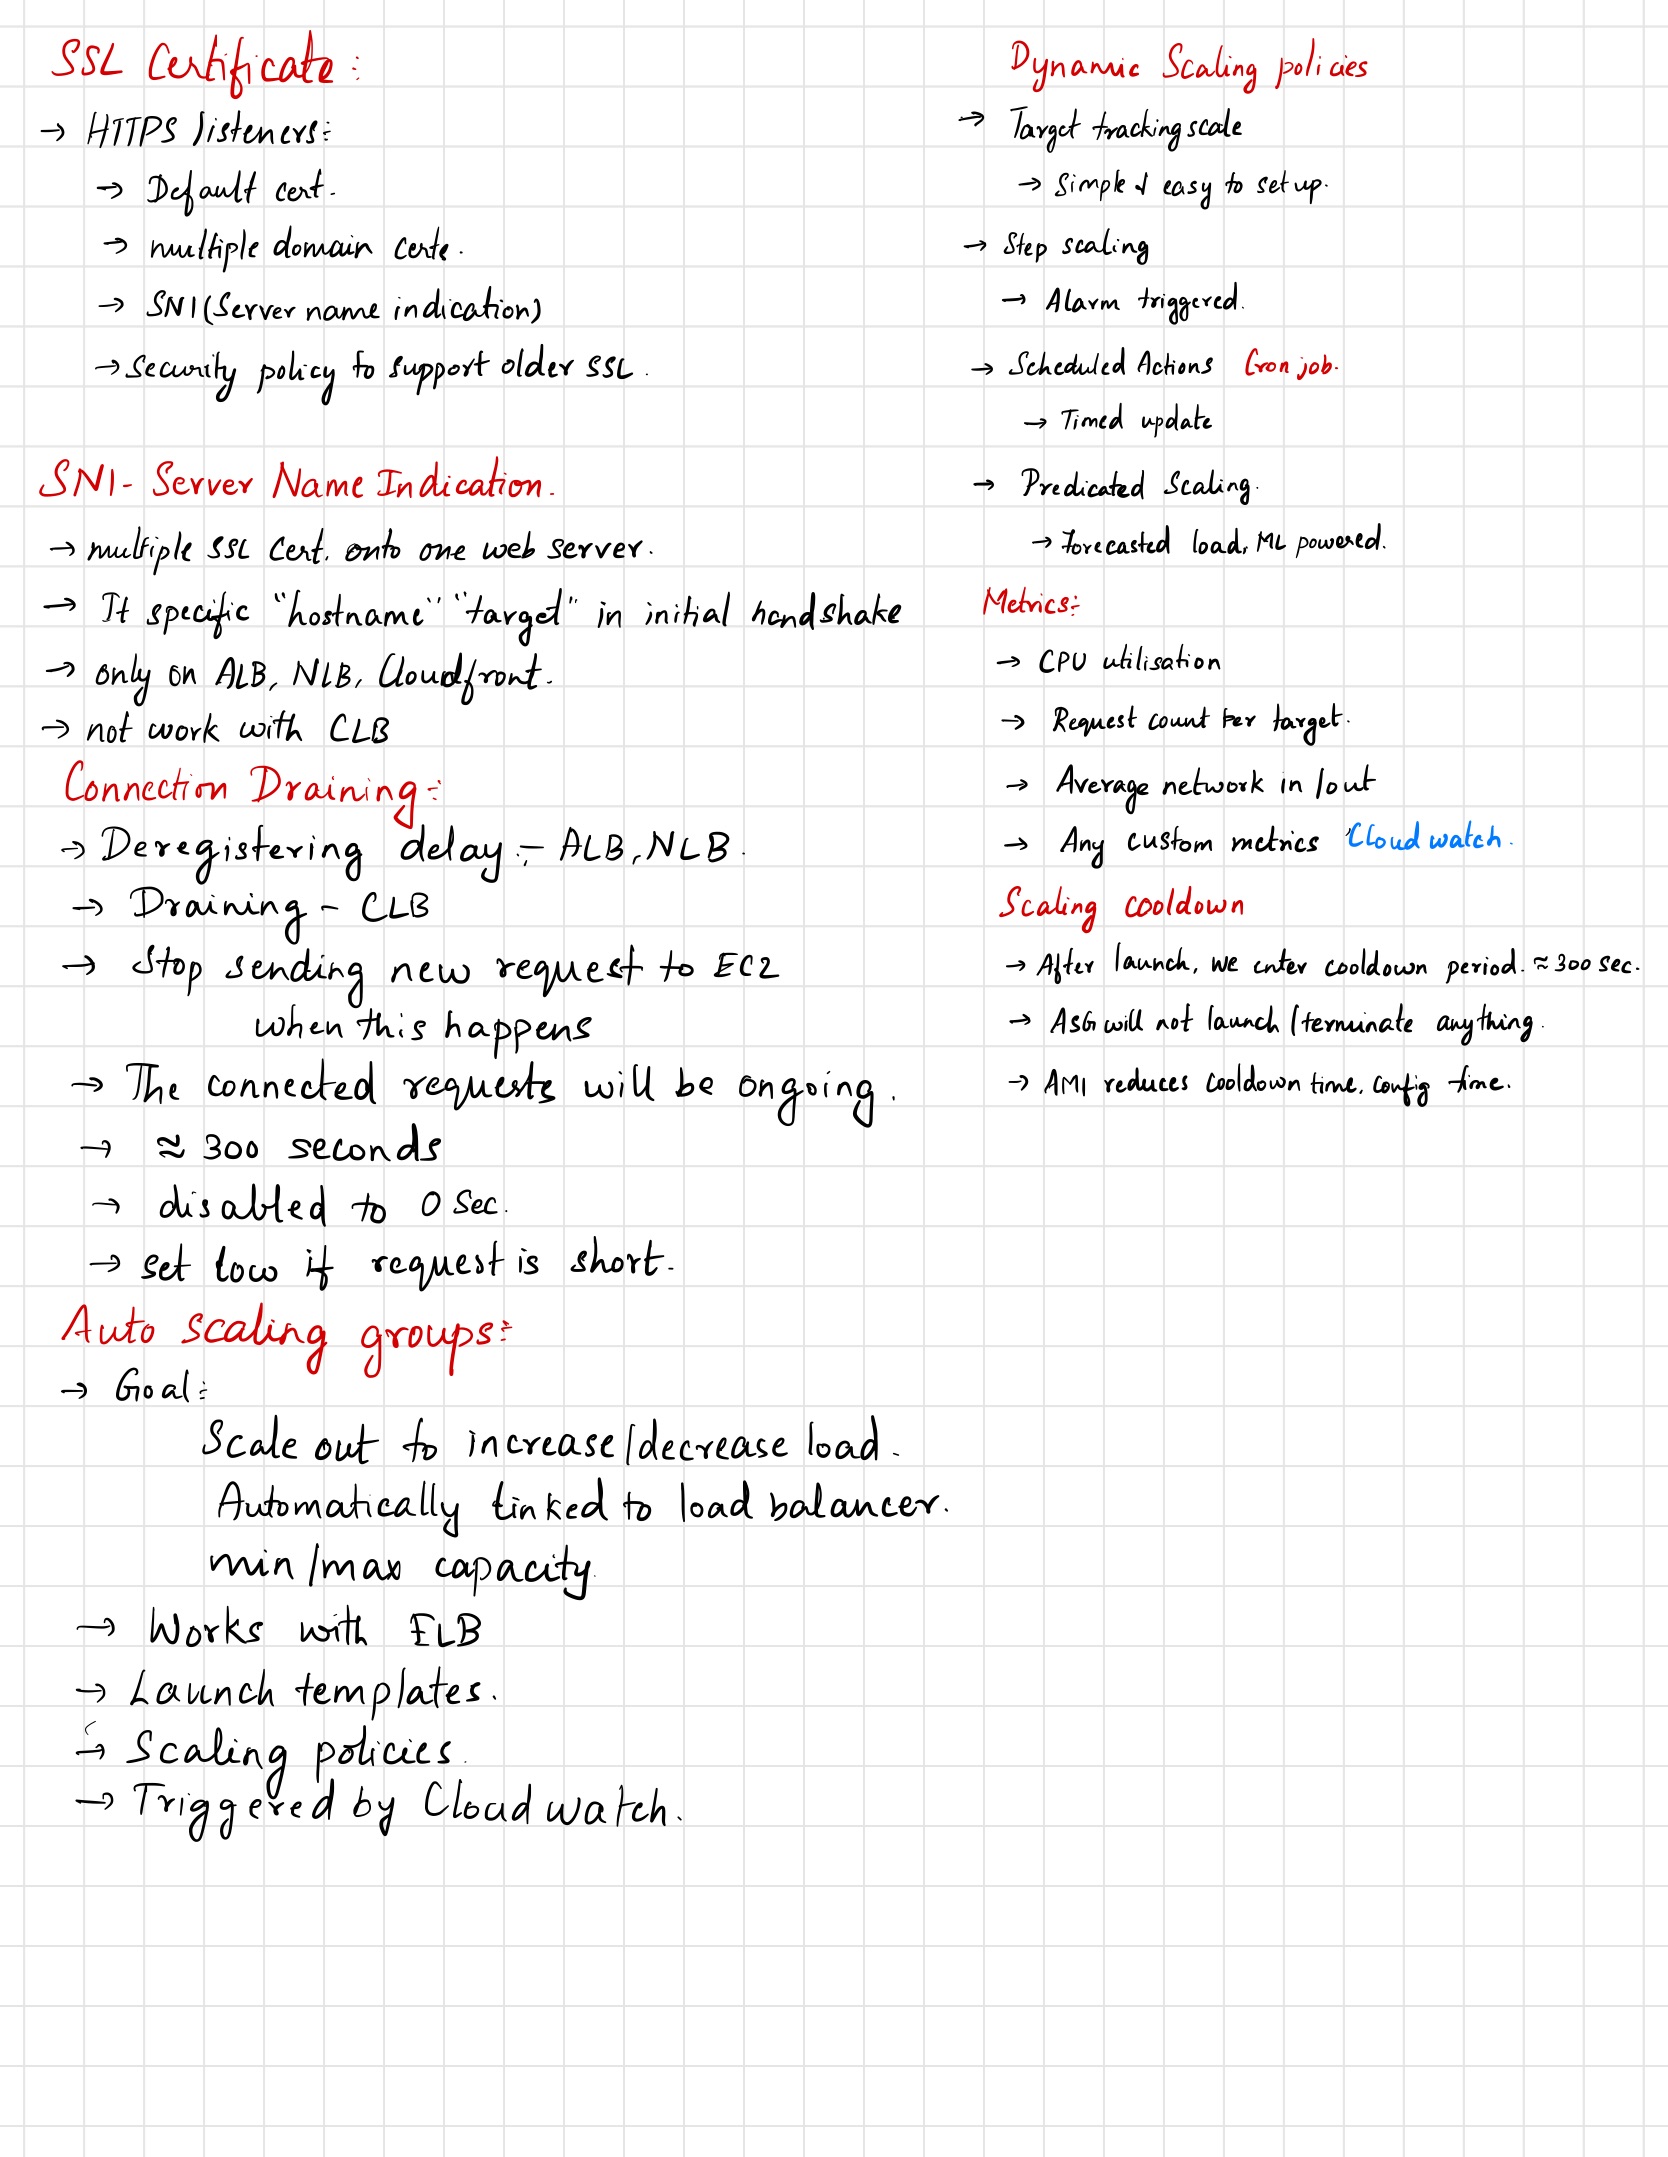 SSL Certificate:
→ HTTPS listeners:
→ Default cert.
→ multiple domain certs.
→ SNI (Server name indication)
→ Security policy to support older SSL.
SNI - Server Name Indication.
→ multiple SSL Cert. onto one web server.
→ It specific "hostname" "target" in initial handshake
→ only on ALB, NLB, Cloudfront.
→ not work with CLB
Connection Draining:-
→ Deregistering delay :- ALB, NLB.
→ Draining - CLB
→ Stop sending new request to EC2
when this happens
→ The connected requests will be ongoing.
→ ≈ 300 seconds
→ disabled to 0 Sec.
→ set low if request is short.
Auto scaling groups:
→ Goal:
Scale out to increase/decrease load.
Automatically linked to load balancer.
min/max capacity.
→ Works with ELB
→ Launch templates.
→ Scaling policies.
→ Triggered by Cloud watch.
Dynamic Scaling policies
→ Target tracking scale
→ Simple & easy to set up.
→ Step scaling
→ Alarm triggered.
→ Scheduled Actions Cron job.
→ Timed update
→ Predicated Scaling.
→ Forecasted load, ML powered.
Metrics:
→ CPU utilisation
→ Request count Per target.
→ Average network in/out
→ Any custom metrics Cloud watch.
Scaling cooldown
→ After launch, we enter cooldown period. ≈ 300 sec.
→ ASG will not launch/terminate anything.
→ AMI reduces cooldown time, config time.